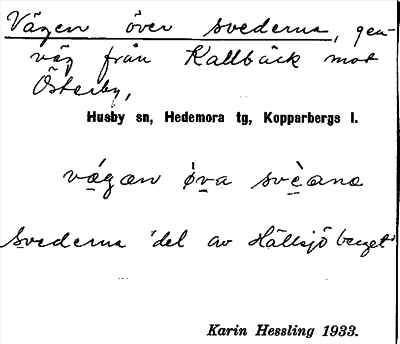 Vägen över svederna, gen-
väg från Kallbäck mot
Österby,
Husby sn, Hedemora tg, Kopparbergs l.
vǽgæn òva svèana
svederna 'del av Hällsjöberget'
Karin Hessling 1933.